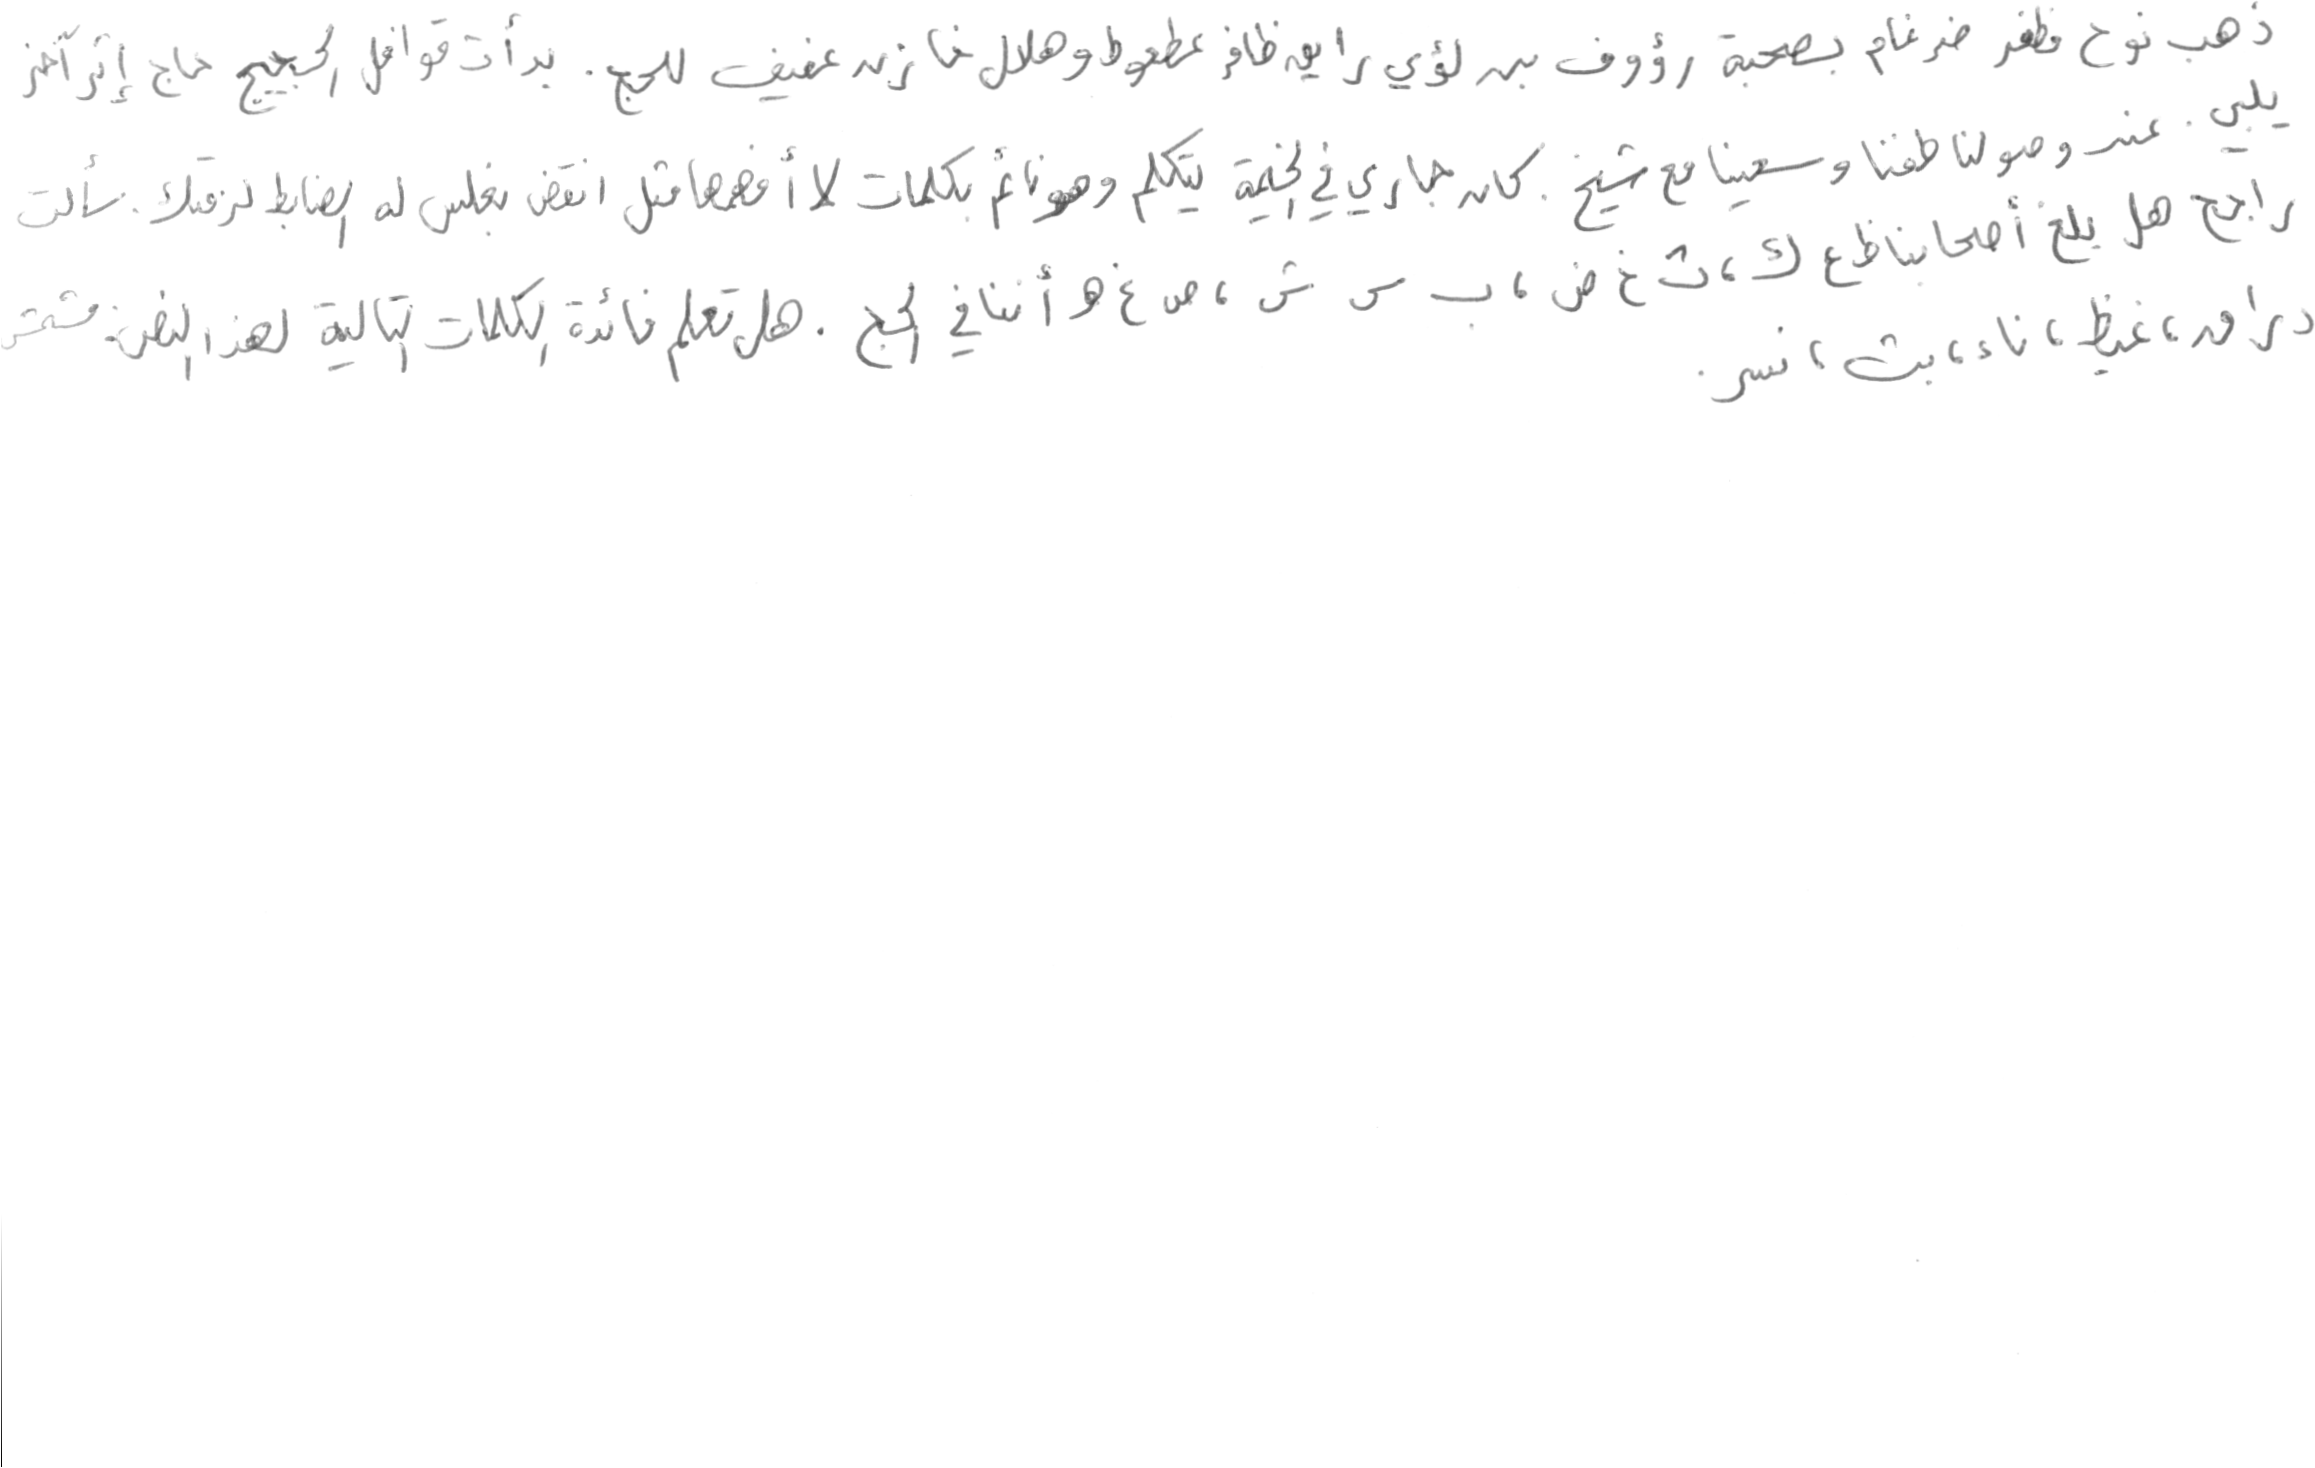 ذهب نوح مظفر ضرغام بصحبة رؤوف بن لؤي رايق ظافر عطعوط وهلال خازن عفيف للحج. بدأت قوافل الحجيج حاج إثر آخر
يلبي. عند وصولنا طفنا وسعينا مع شيخ. كان جاري في الخيمة يتكلم وهو نائم بكلمات لا أفهمها مثل انقض بغلس له الضابط لزقتك. سألت
راجح هل بلغ أصحابنا ظ ع ك، ث خ ض، ب س ش، ص غ هـ أننا في الحج. هل تعلم فائدة الكلمات التالية لهذا النص: مشمش
دراق، غيظ، ناء، بث، نسر.